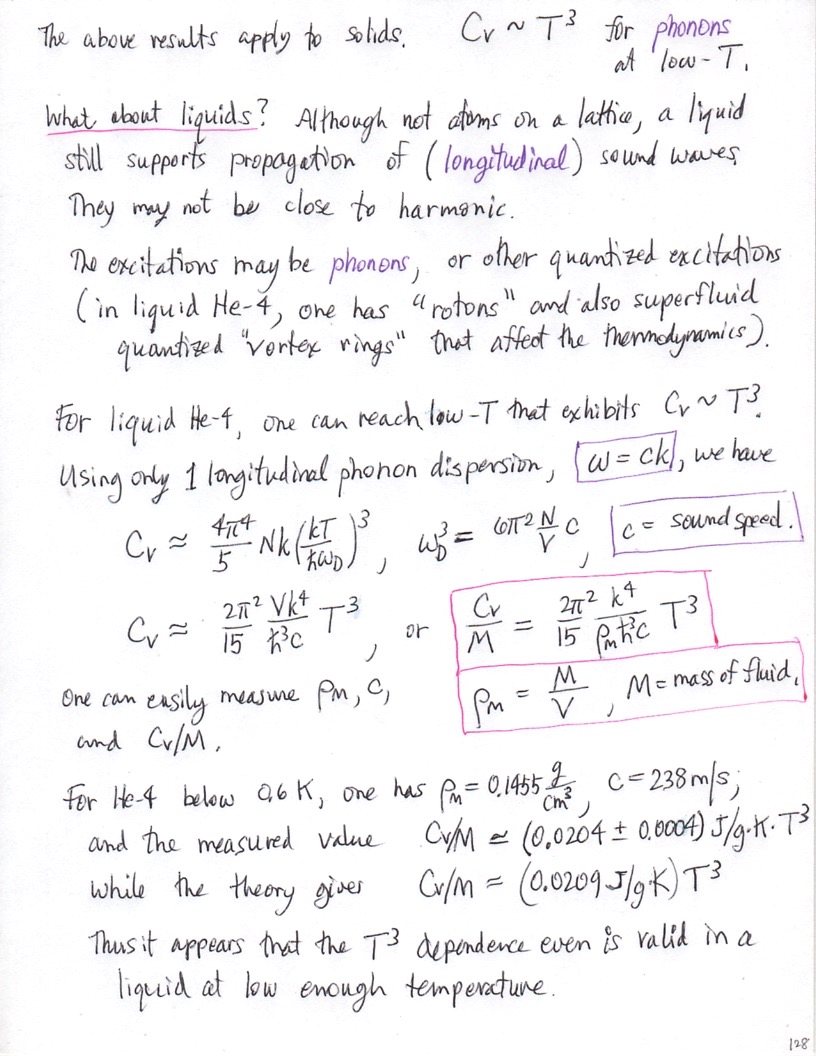 The above results apply to solids. Cv ~ T³ for phonons
at low-T.
What about liquids? Although not atoms on a lattice, a liquid
still supports propagation of (longitudinal) sound waves.
They may not be close to harmonic.
The excitations may be phonons, or other quantized excitations
(in liquid He-4, one has "rotons" and also superfluid
quantized "vortex rings" that affect the thermodynamics).
For liquid He-4, one can reach low-T that exhibits Cv ~ T³.
Using only 1 longitudinal phonon dispersion, ω = ck, we have
Cv ≈ 4π⁴/5 Nk(kT/ħω_D)³, ω_D³ = 6π² N/V c, c = sound speed.
Cv ≈ 2π²/15 Vk⁴/ħ³c T³, or Cv/M = 2π²/15 k⁴/ρ_m ħ³c T³
One can easily measure ρ_m, c, ρ_m = M/V, M = mass of fluid.
and Cv/M.
For He-4 below 0.6 K, one has ρ_m = 0.1455 g/cm³, c = 238 m/s;
and the measured value Cv/M ≃ (0.0204 ± 0.0004) J/g·K · T³
while the theory gives Cv/M ≈ (0.0209 J/g K) T³
Thus it appears that the T³ dependence even is valid in a
liquid at low enough temperature.
128